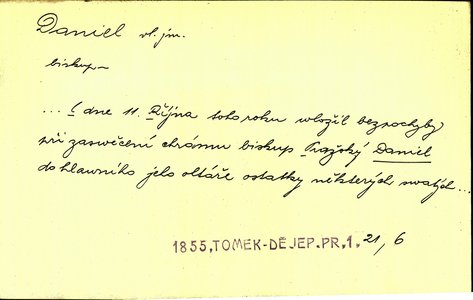 Daniel vl. jm.
biskup
... dne 11. Října toho roku wložil bezpochyby
při zaswěcení chrámu biskup Pražský Daniel
do hlawního jeho oltáře ostatky některých swatých ...
1855, TOMEK-DĚJEP. PR, 1. 21, 6